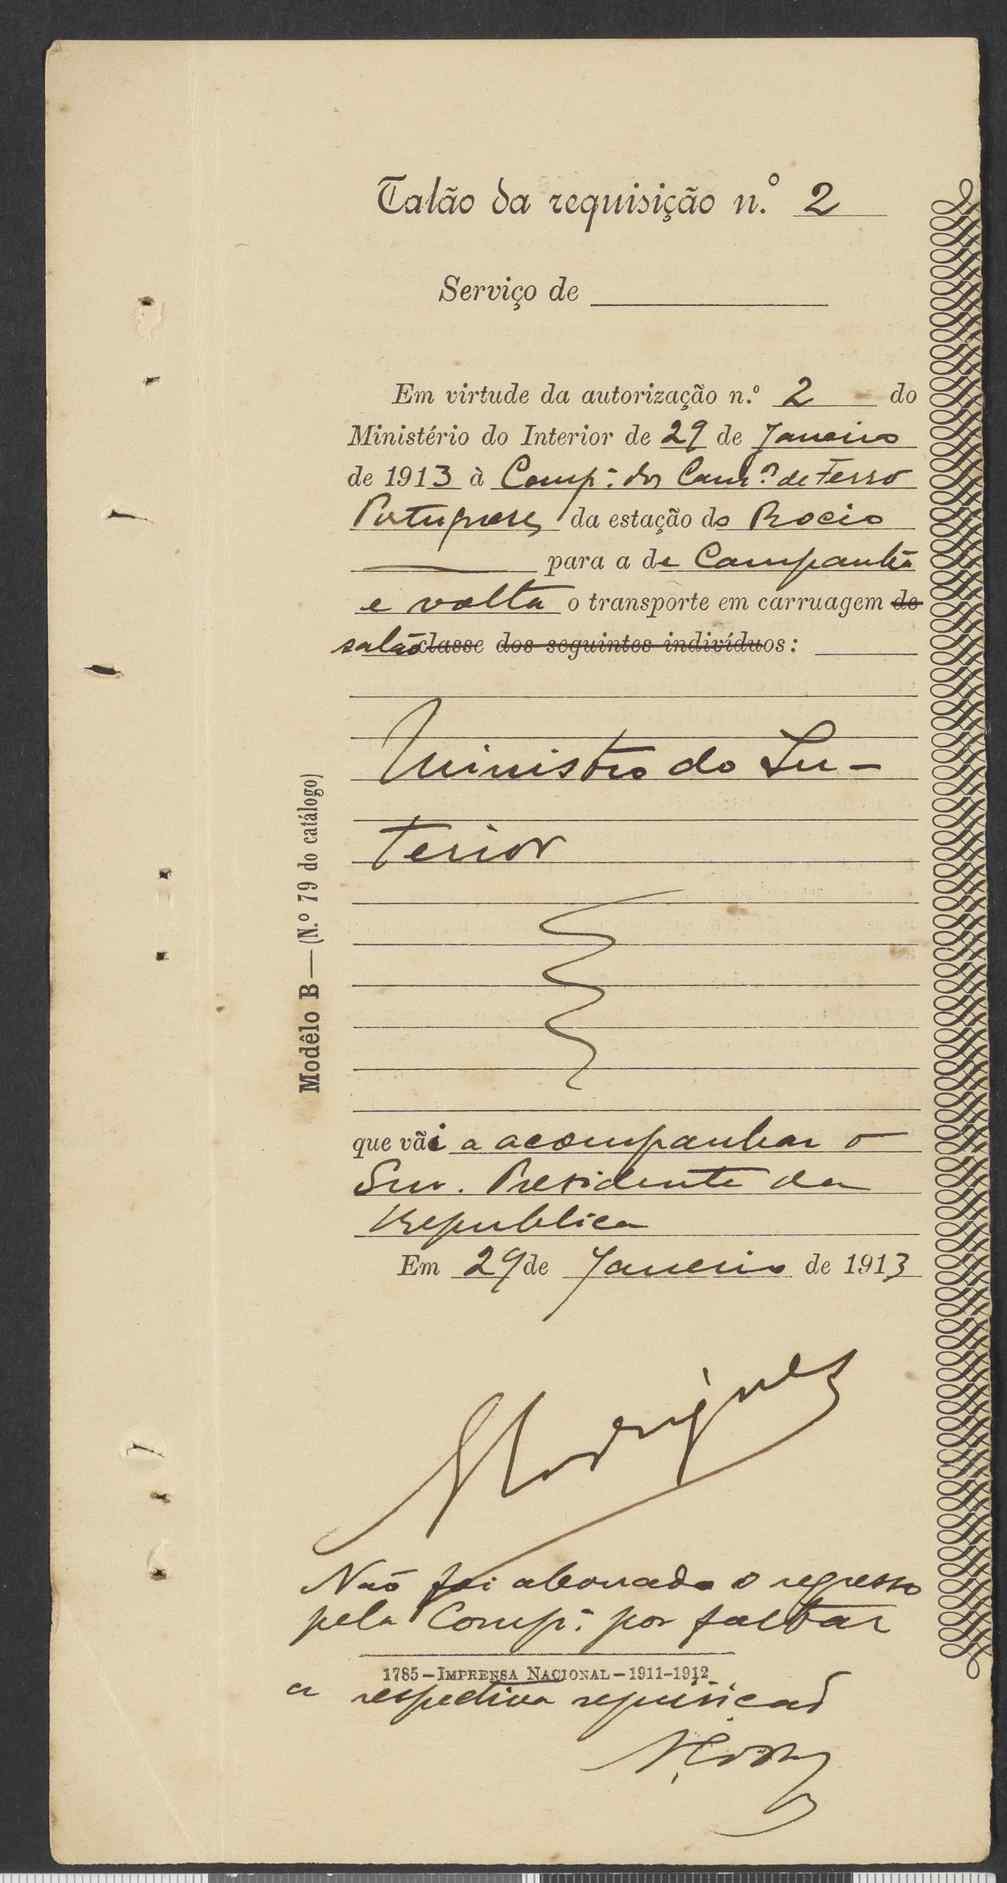 Talão da requisição n.º 2
Serviço de
Em virtude da autorização n.º 2 do
Ministério do Interior de 29 de Janeiro
de 1913 à Comp.ª dos Cam.os de Ferro
Portugueses da estação do Rocio
para a de Campanhã
e volta o transporte em carruagem de
salão classe dos seguintes indivíduos:
Ministro do In-
terior
que vai a acompanhar o
Snr. Presidente da
Republica
Em 29 de Janeiro de 1913
Rodrigues
Não foi abonado o regresso
pela Comp.ª por faltar
1785 — IMPRENSA NACIONAL — 1911-1912
a respectiva requisicão
Modêlo B — (N.º 79 do catálogo)